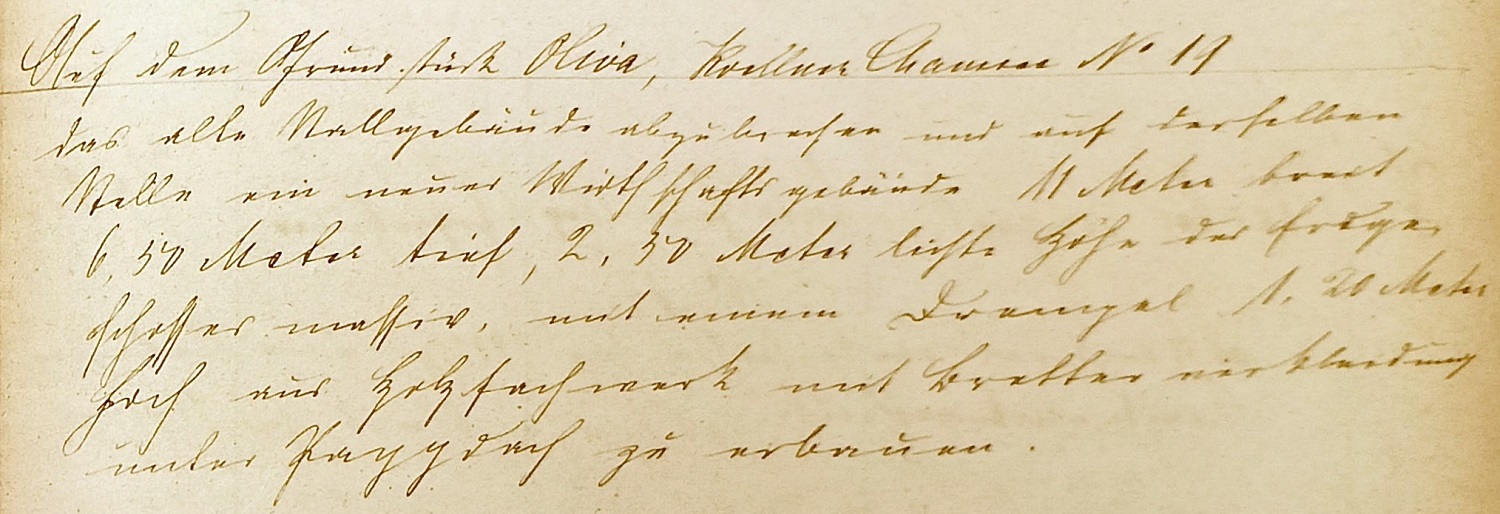 Auf dem Grundstück Oliva, Koellner Chaussee No 19
das alte Stallgebäude abzubrechen und auf derselben
Stelle ein neues Wirthschaftsgebäude 11 Meter breit
6,50 Meter tief, 2,50 Meter lichte Höhe des Erdge-
schosses massiv, mit einem Drempel 1,20 Meter
hoch aus Holzfachwerk mit Bretterverkleidung
unter Pappdach zu erbauen.